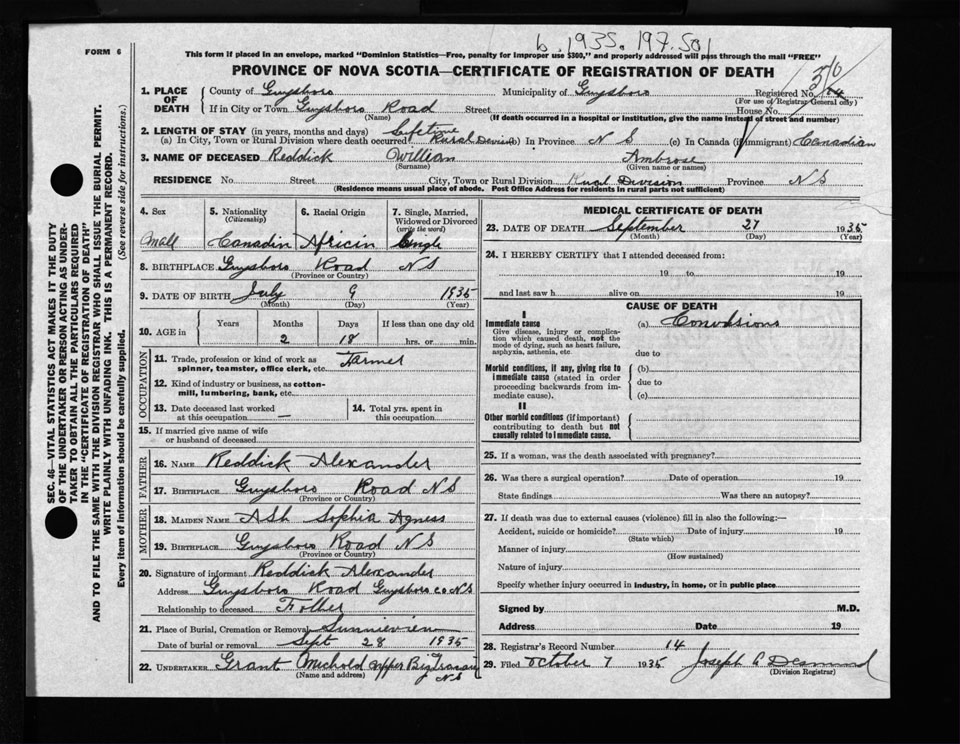 b. 1935. 197.501
FORM 6
This form if placed in an envelope, marked "Dominion Statistics—Free, penalty for improper use $300," and properly addressed will pass through the mail "FREE"
PROVINCE OF NOVA SCOTIA—CERTIFICATE OF REGISTRATION OF DEATH
1. PLACE OF DEATH
County of Guysboro Municipality of Guysboro Registered No.
(For use of Registrar General only)
If in City or Town Guysboro Road Street House No.
(Name) (If death occurred in a hospital or institution, give the name instead of street and number)
2. LENGTH OF STAY (in years, months and days) Lifetime
(a) In City, Town or Rural Division where death occurred Rural Division (b) In Province N S (c) In Canada (if immigrant) Canadian
3. NAME OF DECEASED Reddick William Ambrose
(Surname) (Given name or names)
RESIDENCE No. Street City, Town or Rural Division Rural Division Province N S
(Residence means usual place of abode. Post Office Address for residents in rural parts not sufficient)
4. Sex 5. Nationality (Citizenship) 6. Racial Origin 7. Single, Married, Widowed or Divorced (write the word)
Mall Canadin African Single
8. BIRTHPLACE Guysboro Road N S
(Province or Country)
9. DATE OF BIRTH July 9 1935
(Month) (Day) (Year)
10. AGE in Years Months Days If less than one day old
2 18 hrs. or min.
OCCUPATION
11. Trade, profession or kind of work as spinner, teamster, office clerk, etc. Farmer
12. Kind of industry or business, as cotton-mill, lumbering, bank, etc.
13. Date deceased last worked at this occupation —
14. Total yrs. spent in this occupation.
15. If married give name of wife or husband of deceased
FATHER
16. NAME Reddick Alexander
17. BIRTHPLACE Guysboro Road N S
(Province or Country)
MOTHER
18. MAIDEN NAME Ash Sophia Agness
19. BIRTHPLACE Guysboro Road N S
(Province or Country)
20. Signature of informant Reddick Alexander
Address Guysboro Road Guysboro co N S
Relationship to deceased Father
21. Place of Burial, Cremation or Removal
Date of burial or removal Sept 28 1935
22. UNDERTAKER Grant Upper Big Tracadie N S
(Name and address)
MEDICAL CERTIFICATE OF DEATH
23. DATE OF DEATH September 27 1935
(Month) (Day) (Year)
24. I HEREBY CERTIFY that I attended deceased from:
19 to 19
and last saw h alive on 19
CAUSE OF DEATH
I
Immediate cause
Give disease, injury or complication which caused death, not the mode of dying, such as heart failure, asphyxia, asthenia, etc
(a) Convulsions
due to
Morbid conditions, if any, giving rise to immediate cause (stated in order proceeding backwards from immediate cause).
(b)
due to
(c)
II
Other morbid conditions (if important) contributing to death but not causally related to immediate cause.
25. If a woman, was the death associated with pregnancy?
26. Was there a surgical operation? Date of operation 19
State findings Was there an autopsy?
27. If death was due to external causes (violence) fill in also the following:—
Accident, suicide or homicide? Date of injury 19
(State which)
Manner of injury
(How sustained)
Nature of injury
Specify whether injury occurred in industry, in home, or in public place
Signed by M.D.
Address Date 19
28. Registrar's Record Number 14
29. Filed October 7 1935 Joseph A Desmond
(Division Registrar)
SEC. 46—VITAL STATISTICS ACT MAKES IT THE DUTY
OF THE UNDERTAKER OR PERSON ACTING AS UNDER-
TAKER TO OBTAIN ALL THE PARTICULARS REQUIRED
IN THE "CERTIFICATE OF REGISTRATION OF DEATH"
AND TO FILE THE SAME WITH THE DIVISION REGISTRAR WHO SHALL ISSUE THE BURIAL PERMIT.
WRITE PLAINLY WITH UNFADING INK. THIS IS A PERMANENT RECORD.
Every item of information should be carefully supplied. (See reverse side for instructions.)